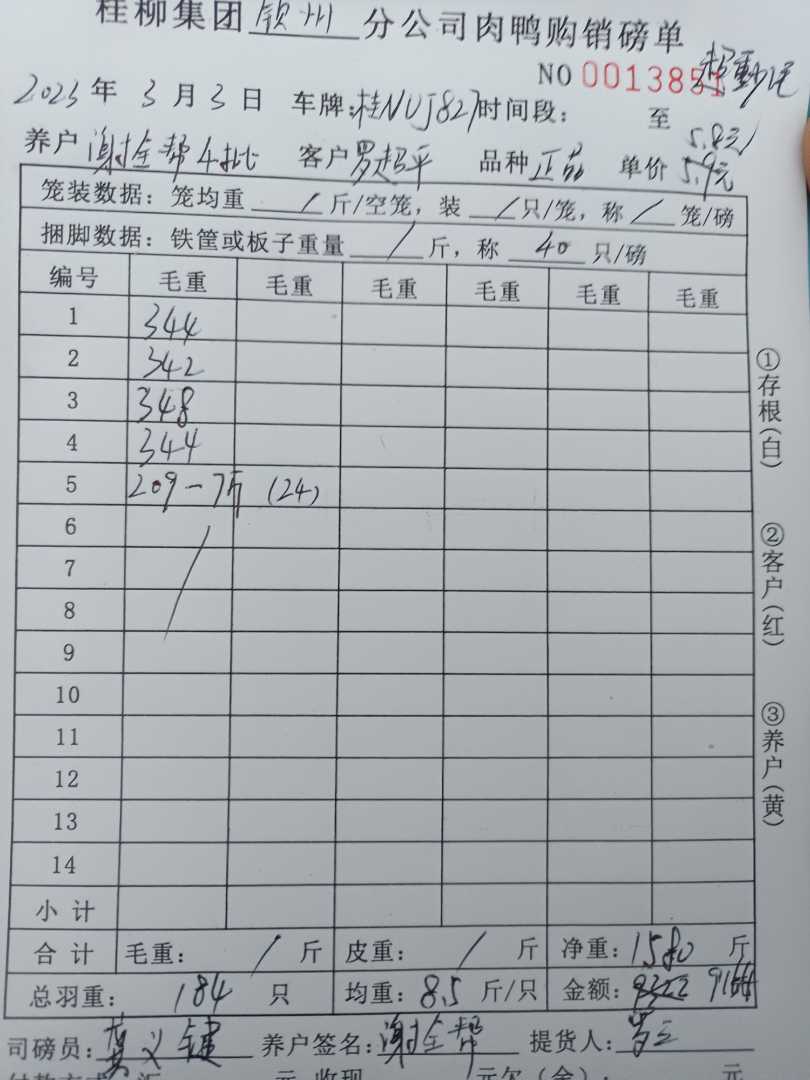 桂柳集团 钦州 分公司肉鸭购销磅单
NO 001385
2023年 3月3日 车牌:桂NUJ827 时间段: 至
5.8元/
养户 谢全帮4批 客户 罗超平 品种 正品 单价 5.9元
笼装数据: 笼均重 / 斤/空笼, 装 / 只/笼, 称 / 笼/磅
捆脚数据: 铁筐或板子重量 / 斤, 称 40 只/磅
编号 毛重 毛重 毛重 毛重 毛重 毛重
1 344
2 342
3 348
4 344
5 209-7斤 (24)
6
7
8
9
10
11
12
13
14
小计
合计 毛重: / 斤 皮重: / 斤 净重: 1580 斤
总羽重: 184 只 均重: 8.5 斤/只 金额: 9164
司磅员: 黄义健 养户签名: 谢全帮 提货人: 罗
元 收现 元欠(余): 元
①存根(白)
②客户(红)
③养户(黄)